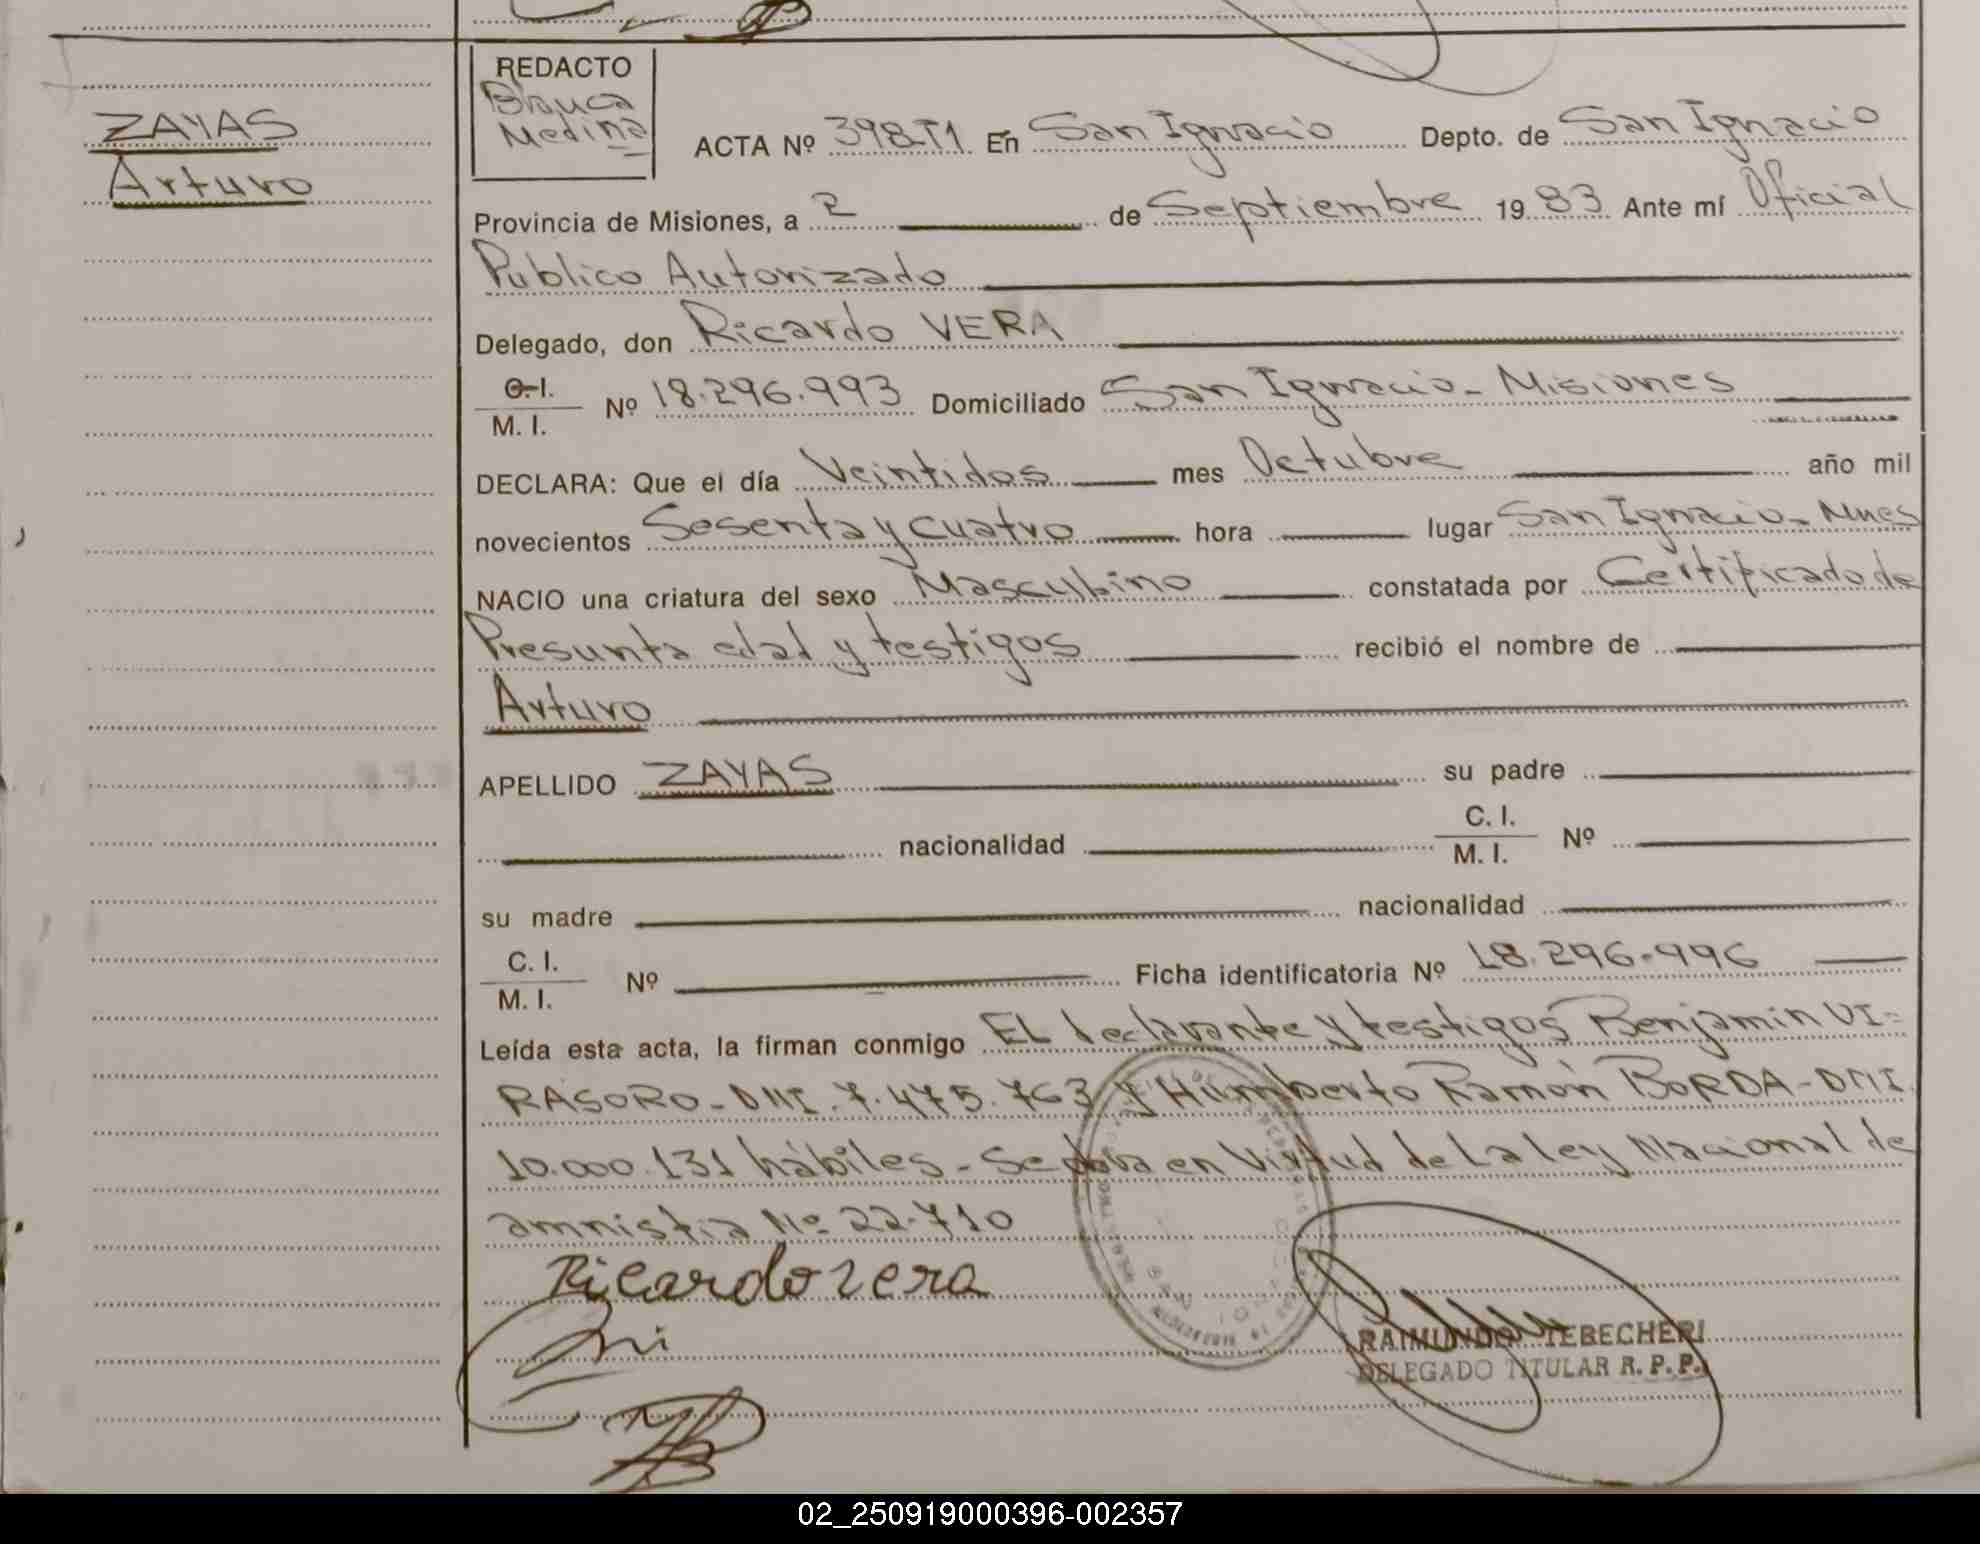 ZAYAS
Arturo
REDACTO
Blanca
Medina
ACTA Nº 398-T1 En San Ignacio Depto. de San Ignacio
Provincia de Misiones, a 2 de Septiembre 1983 Ante mí Oficial
Publico Autorizado
Delegado, don Ricardo VERA
C. I.
M. I. Nº 18.296.993 Domiciliado San Ignacio - Misiones
DECLARA: Que el día Veintidos mes Octubre año mil
novecientos Sesenta y cuatro hora lugar San Ignacio - Mnes
NACIO una criatura del sexo Masculino constatada por Certificado de
Presunta edad y testigos recibió el nombre de
Arturo
APELLIDO ZAYAS su padre
nacionalidad C. I.
M. I. Nº
su madre nacionalidad
C. I.
M. I. Nº Ficha identificatoria Nº 18.296.996
Leída esta acta, la firman conmigo EL declarante y testigos Benjamin VI=
RASORO - DNI. 7.475.763 y Humberto Ramón BORDA - DNI.
10.000.131 hábiles - Se labra en Virtud de La ley Nacional de
amnistia Nº 22.710
Ricardo vera
RAIMUNDO TEBECHERI
DELEGADO TITULAR R. P. P.
02_250919000396-002357